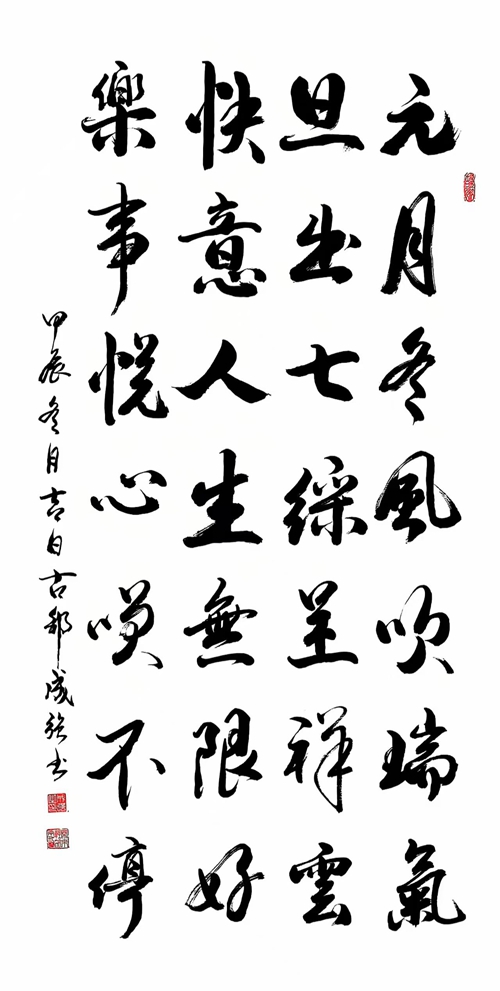 元月冬風吹瑞氣
旦出七綵呈祥雲
快意人生無限好
樂事悅心不停
甲辰冬月吉日古成強书